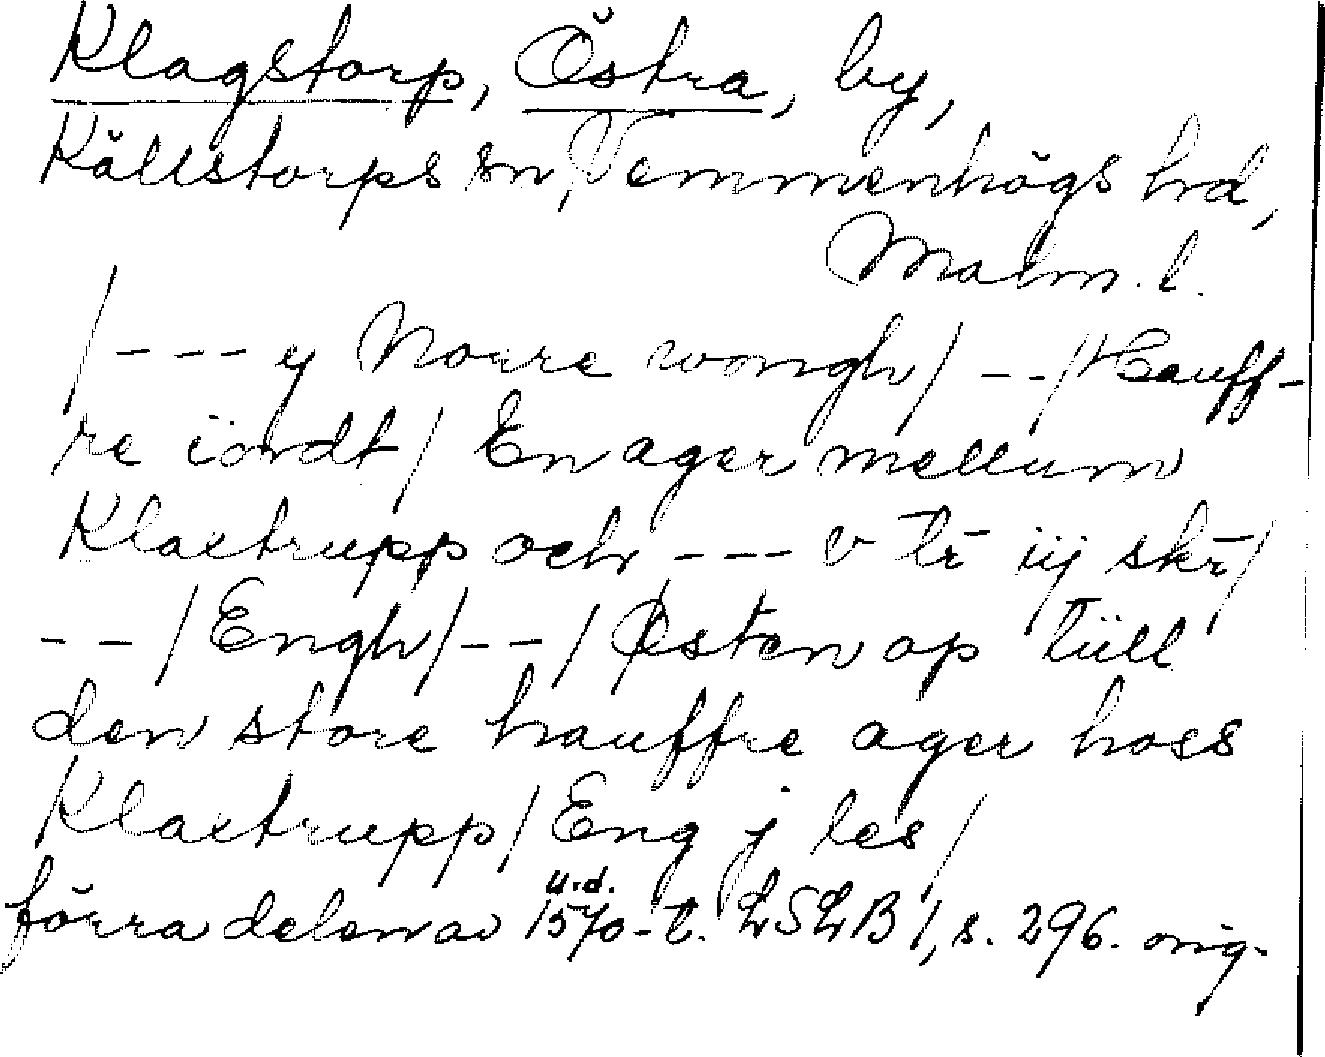 Klagstorp, Östra, by,
Källstorps sn, Vemmenhögs hrd,
Malm. l.
/--- y Norre wongh/ --/ Hauff-
re iordt/ En ager mellum
Klaxtrupp och --- v tr̄ iij skr̄/
--/Engh/--/Østen op tiill
den store hauffre ager hoes
Klaxtrupp/ Eng j les/
u.d.
förra delen av 1570-t. LSLB 1, s. 296. orig.